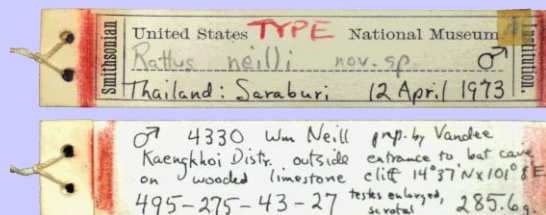 Smithsonian
Institution.
United States TYPE National Museum
Rattus neilli nov. sp ♂
Thailand: Saraburi 12 April 1973
♂ 4330 Wm Neill prep. by Vandee
Kaengkhoi Distr. outside entrance to bat cave
on wooded limestone cliff 14°37'N x 101°8'E
495-275-43-27 testes enlarged, scrotal 285.6g.